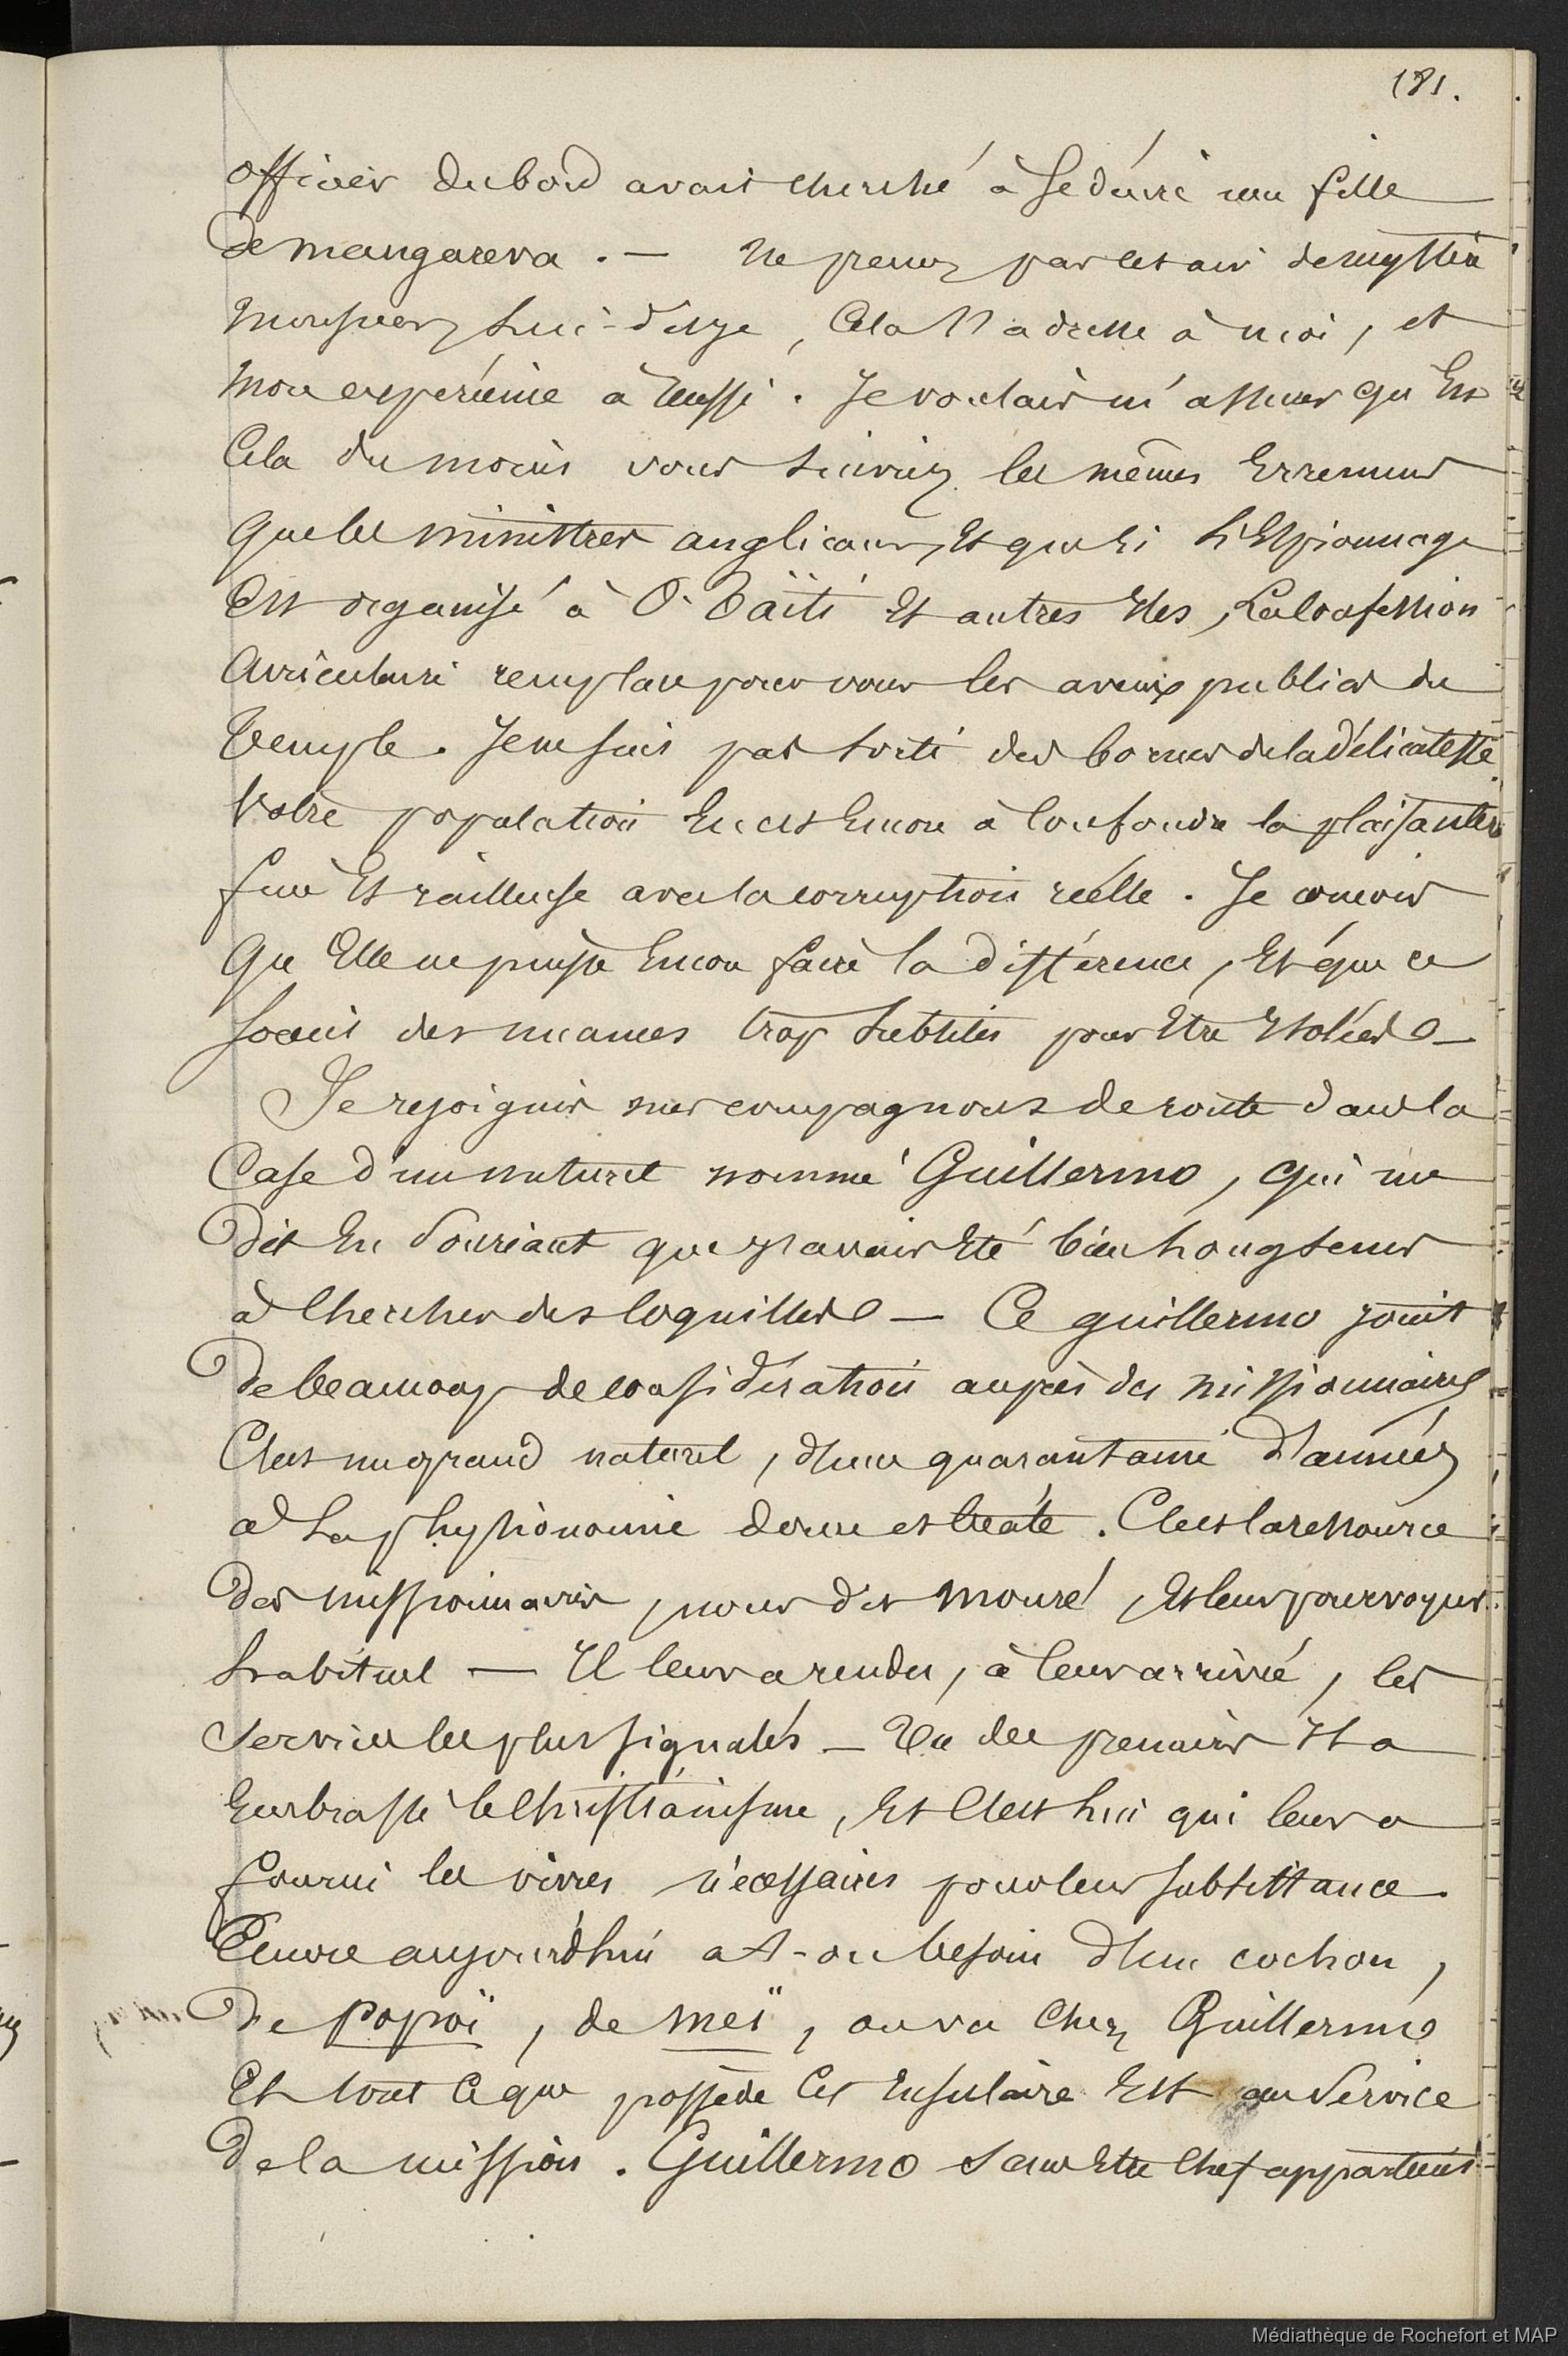 181.
officier du bord avait cherché à séduire une fille
de mangareva . — Ne prenez pas cet air de mystère
monsieur, lui-dis-je, cela s'adresse à moi, et
mon expérience à réussi. Je voulais m'assurer qu'en
cela du moins vous suiviez les mêmes errements
que les ministres anglicans, et que si l'Espionnage
est organisé à O-Taïti et autres iles, la confession
auriculaire remplace pour vous les aveux publics du
temple. Je ne suis pas sorti des bornes de la délicatesse.
Votre population en est encore à confondre la plaisanterie
fine et railleuse avec la corruption réelle. Je conçois
qu'Elle ne puisse encore faire la différence, et que ce
soient des nuances trop subtiles pour être isolées —
Je rejoignis mes compagnons de route dans la
case d'un naturel nommé Guillermo, qui me
dit en souriant que j'avais été bien longtems
à chercher des coquilles — Ce guillermo jouit
de beaucoup de considération auprès des missionnaires
C'est un grand naturel, d'une quarantaine d'années
à la physionomie douce et béate. C'est la ressource
des missionnaires, nous dit mouré, et leur pourvoyeur
habituel — Il leur a rendu, à leur arrivée, les
services les plus signalés — Un des premiers il a
embrassé le christianisme, et c'est lui qui leur a
fourni les vivres nécessaires pour leur subsistance.
Encore aujourd'hui a-t-on besoin d'un cochon,
de popoï, de meï, on va chez Guillermo
et tout ce que possède cet insulaire est au service
de la mission. Guillermo sans être chef appartient
Médiathèque de Rochefort et MAP